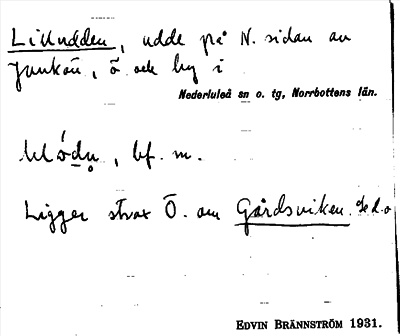 Lilludden, udde på N. sidan av
Junkön, ö och by i
Nederluleå sn o. tg, Norrbottens län.
bf. m.
Ligger strax Ö. om Gårdsviken. Se d.o
EDVIN BRÄNNSTRÖM 1931.